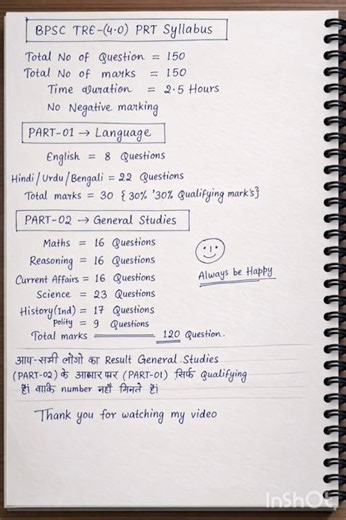 BPSC TRE-(4.0) PRT Syllabus
Total No of Question = 150
Total No of marks = 150
Time duration = 2.5 Hours
No Negative marking
PART-01 → Language
English = 8 Questions
Hindi/Urdu/Bengali = 22 Questions
Total marks = 30 {30% '30% Qualifying mark's}
PART-02 → General Studies
Maths = 16 Questions
Reasoning = 16 Questions
Current Affairs = 16 Questions
Science = 23 Questions
History(Ind) = 17 Questions
Polity = 9 Questions
Total marks 120 Question.
Always be Happy
आप-सभी लोगो का Result General Studies
(PART-02) के आधार पर (PART-01) सिर्फ Qualifying
है। बाकि number नहीं गिनते है।
Thank you for watching my video
InShOt